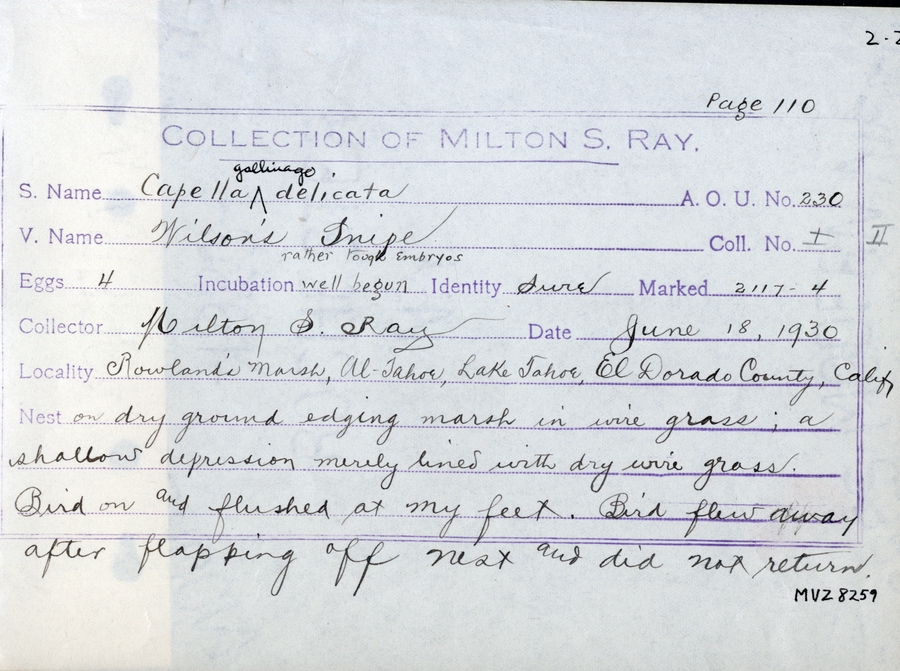 2-2
Page 110
COLLECTION OF MILTON S. RAY.
gallinago
S. Name Capella ⋀ delicata A. O. U. No. 230
V. Name Wilson's Snipe Coll. No. I II
rather tough Embryos
Eggs 4 Incubation well begun Identity Sure Marked 2117-4
Collector Milton S. Ray Date June 18, 1930
Locality Rowland's Marsh, Al-Tahoe, Lake Tahoe, El Dorado County, Calif
Nest on dry ground edging marsh in wire grass; a
shallow depression merely lined with dry wire grass.
Bird on and flushed at my feet. Bird flew away
after flapping off nest and did not return.
MVZ 8259